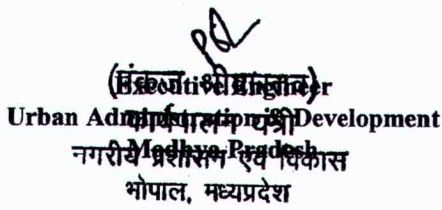 (पंकज श्रीवास्तव)
Executive Engineer
Urban Administration & Development
कार्यपालन यंत्री
Madhya Pradesh
नगरीय प्रशासन एवं विकास
भोपाल, मध्यप्रदेश